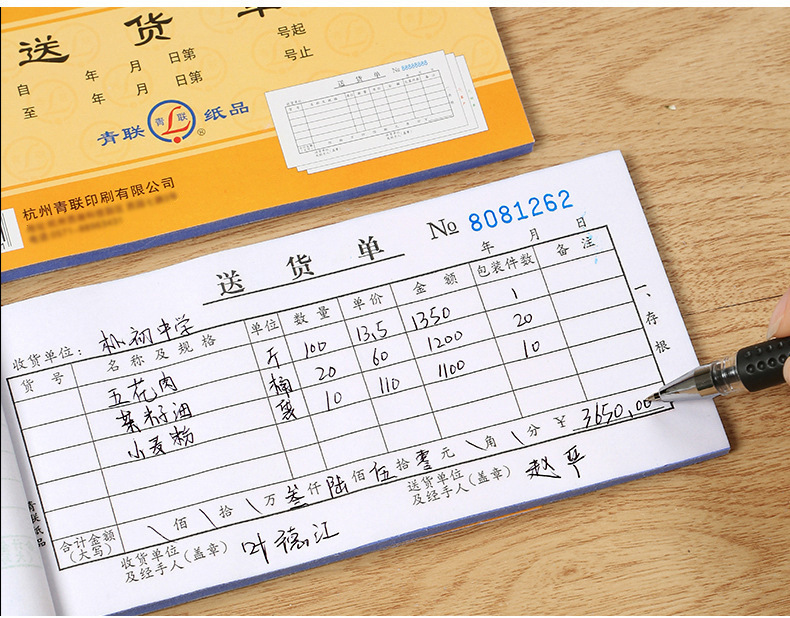 送货单
自 年 月 日第 号起
至 年 月 日第 号止
青联 青联 ® 纸品
杭州青联印刷有限公司
送货单 № 8081262
年 月 日
收货单位: 初中学
货号 名称及规格 单位 数量 单价 金额 包装件数 备注
五花肉 斤 100 13.5 1350 1
菜籽油 桶 20 60 1200 20
小麦粉 袋 10 110 1100 10
合计金额(大写) \ 佰 \ 拾 \ 万 叁 仟 陆 佰 伍 拾 零 元 \ 角 \ 分 ¥ 3650.00
收货单位及经手人(盖章) 叶德江 送货单位及经手人(盖章) 赵平
一、存根
青联纸品